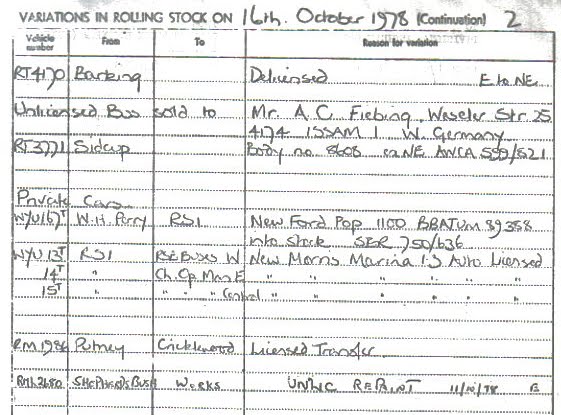 VARIATIONS IN ROLLING STOCK ON 16th. October 1978 (Continuation) 2
Vehicle number From To Reason for variation
RT4170 Barking Delicensed E to NE
Unlicensed Bus sold to Mr. A. C. Fiebing, Weseler Str. 25
4174 ISSAM 1 W. Germany
RT3771 Sidcup Body no. 8608 ex NE AWCA 559/521
Private Cars
WYU 167T W.H. Perry RS1 New Ford Pop 1100 BBATUM 89358
into stock SER 750/636
WYU 13T RS1 RSE Buses W New Morris Marina 1.3 Auto Licensed
14T " Ch. Op. Man E " " " " " "
15T " " " " Central " " " " " "
RM1986 Putney Cricklewood Licensed Transfer
RML2680 SHEPHERDS BUSH WORKS UNLIC REPAINT 11/10/78 B